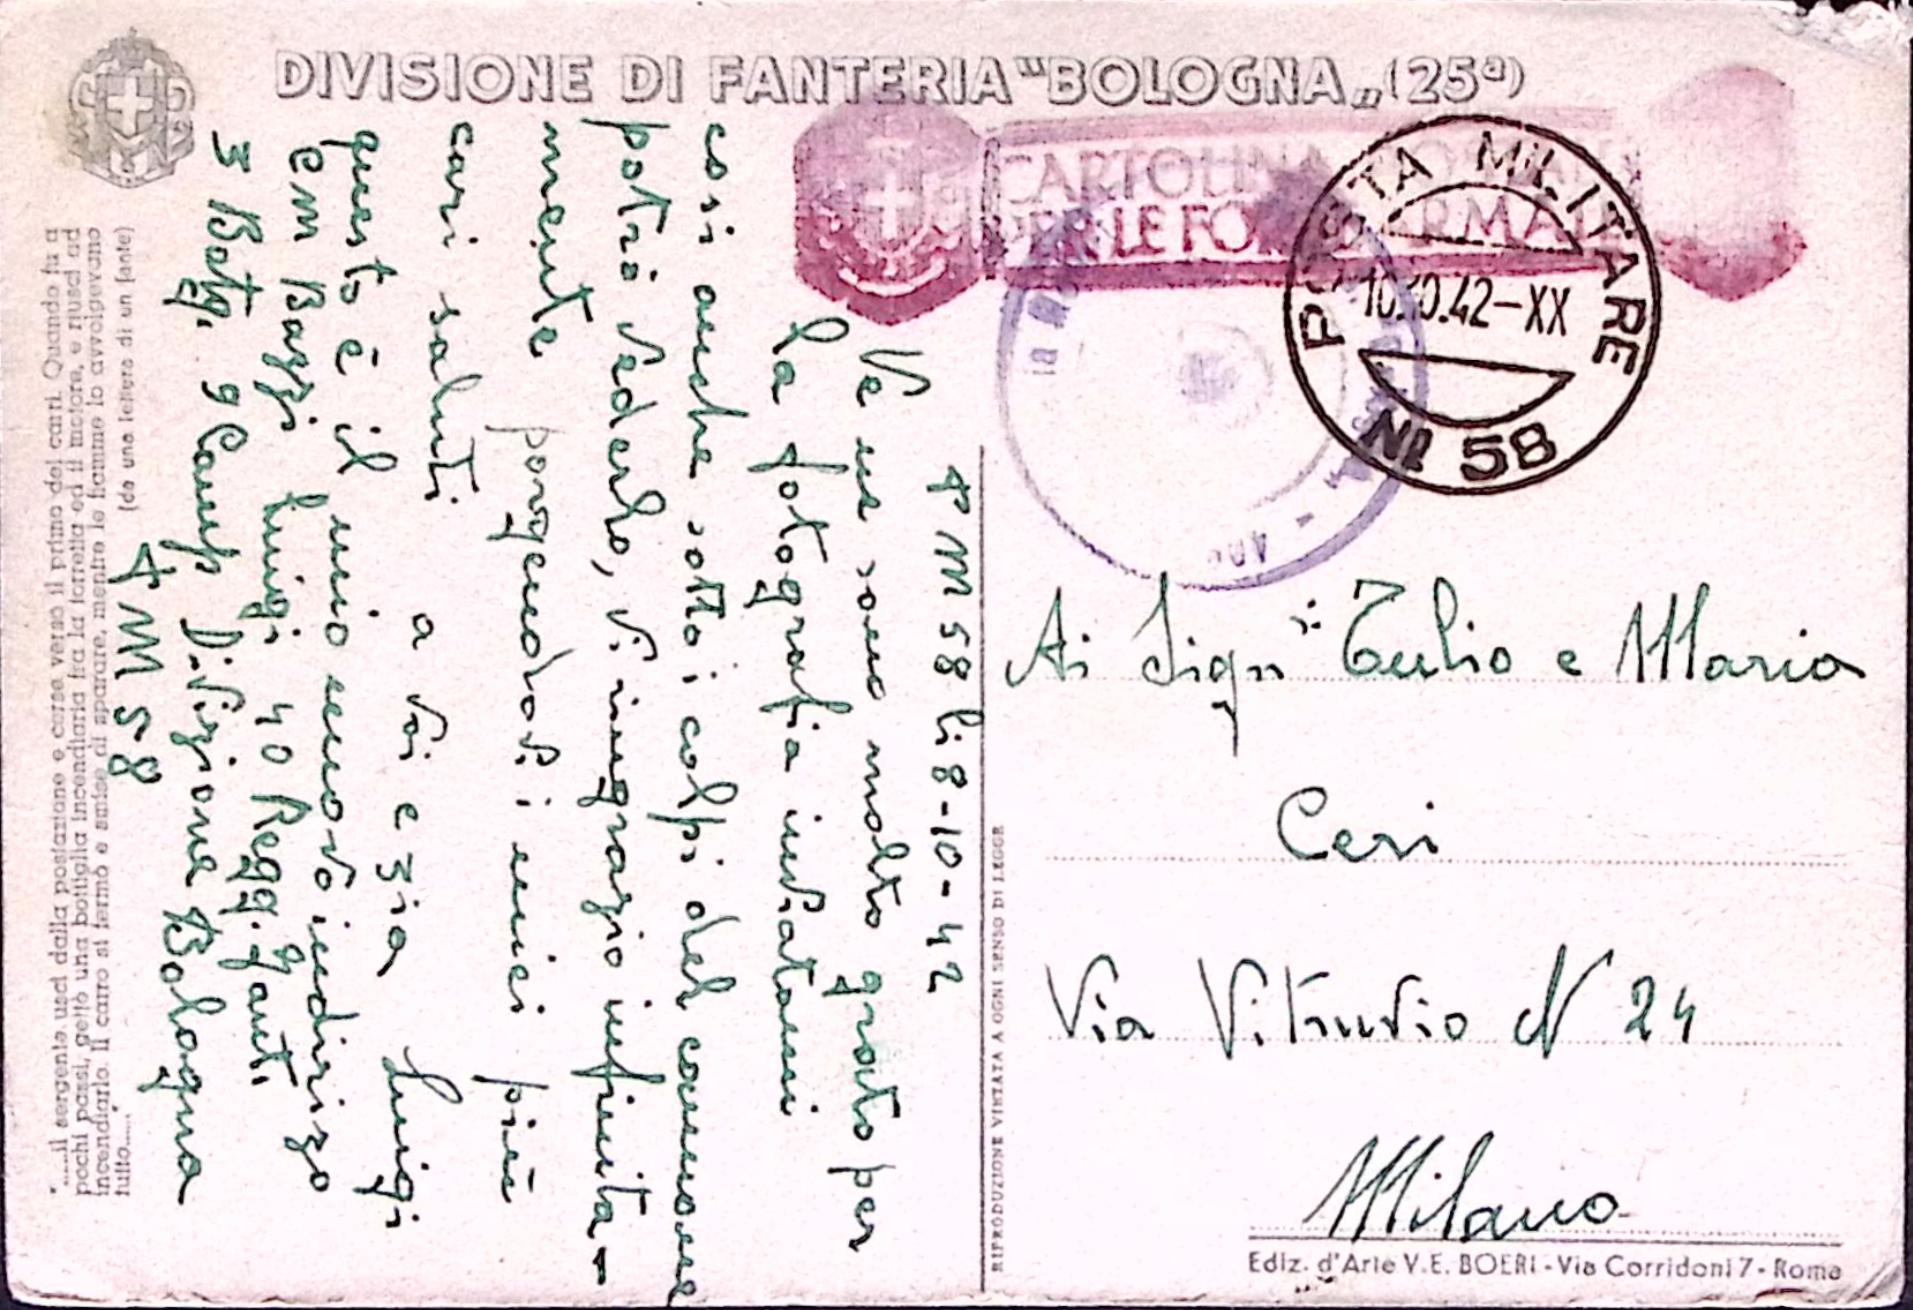 DIVISIONE DI FANTERIA "BOLOGNA„ (25ª)
CARTOLINA
PER LE FORZE ARMATE
POSTA MILITARE
10.10.42-XX
Nº 58
P M 58 li 8-10-42
Ve ne sono molto grato per
la fotografia inviatami
così anche sotto i colpi del cannone
potrò vederlo, vi ringrazio infinita-
mente porgendovi i miei più
cari saluti a voi e zia Luigi
questo è il mio nuovo indirizzo
Luigi 40 Regg. fant.
3 Batg. 9 Comp Divizione Bologna
P M 58
".....il sergente uscì dalla postazione e corse verso il primo dei carri. Quando fu a
pochi passi, gettò una bottiglia incendiaria fra la torretta ed il motore, e riuscì ad
incendiarlo. Il carro si fermò e smise di sparare, mentre le fiamme lo avvolgevano
tutto....."
(da una lettera di un fante)
RIPRODUZIONE VIETATA A OGNI SENSO DI LEGGE
Ai Sign.i Tulio e Maria
Ceri
Via Vitruvio N 24
Milano
Ediz. d'Arte V.E. BOERI - Via Corridoni 7 - Roma